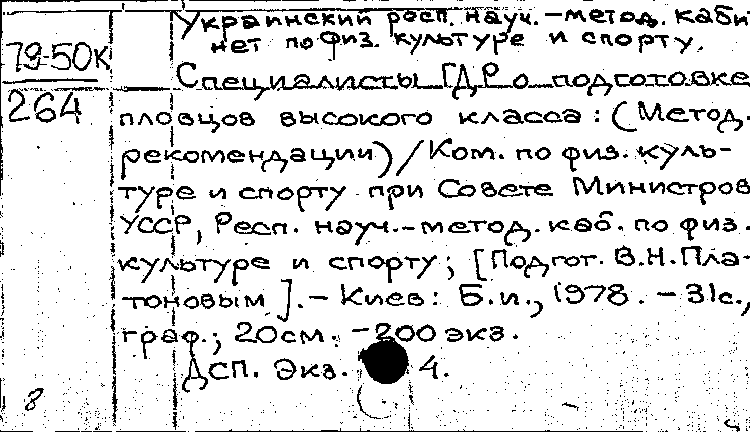 Украинский респ. науч.-метод. каби
нет по физ. культуре и спорту.
79-50к
264
Специалисты ГДР о подготовке
пловцов высокого класса: (Метод.
рекомендации) / Ком. по физ. куль-
туре и спорту при Совете Министров
УССР, Респ. науч.-метод. каб. по физ.
культуре и спорту; [Подгот. В.Н. Пла-
тоновым]. - Киев: Б.и., 1978. - 31с.,
граф.; 20см. - 200 экз.
ДСП. Экз. 4.
8